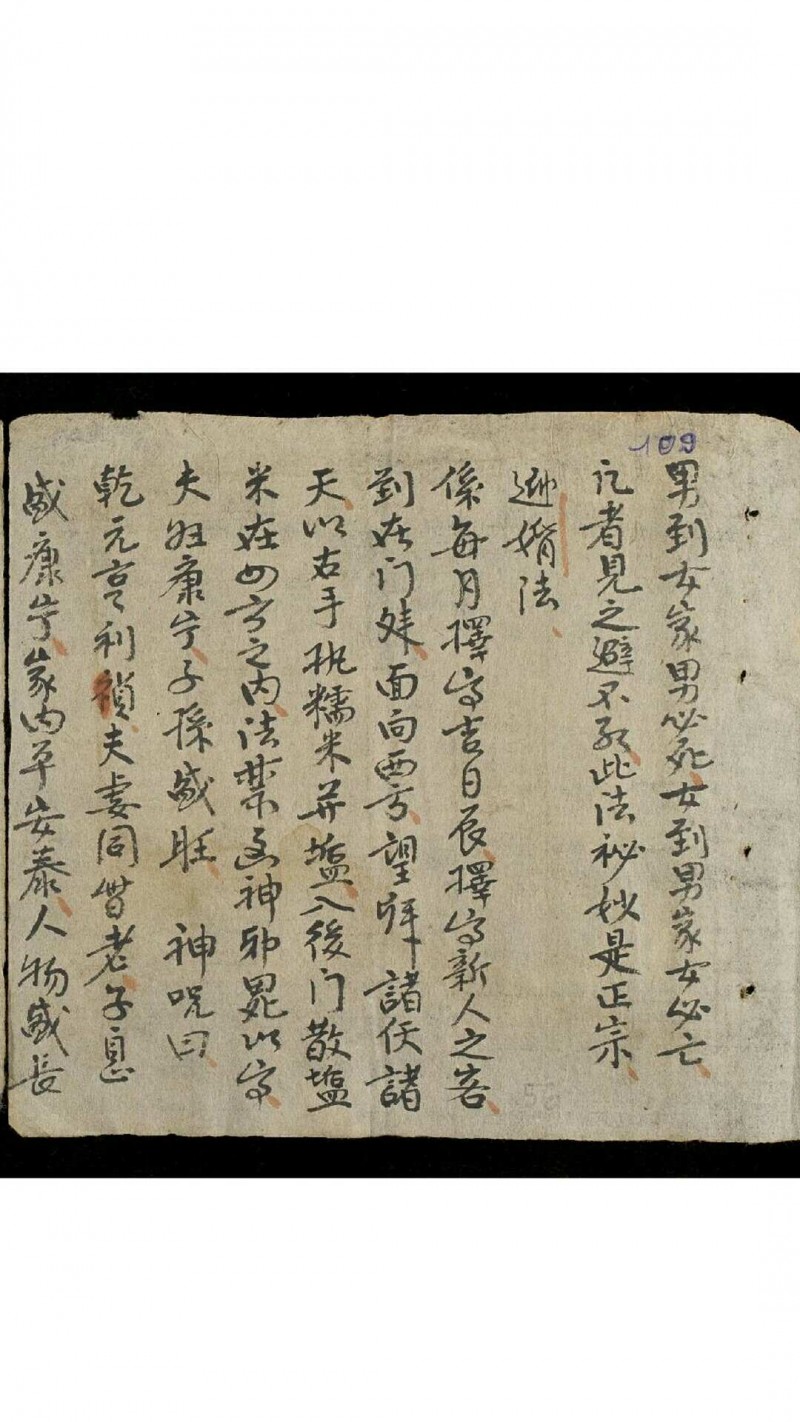 109
男到女家男必死女到男家女必亡
凡者見之避不死此法祕妙是正宗
婚法
係每月擇寫吉日辰擇寫新人之客
到在门外面向西方望拜諸天諸
天以右手执糯米并塩入後门散塩
米在四方之内法禁凶神邪鬼以寫
夫妇康宁子孫盛旺 神咒曰
乾元亨利禎夫妻同偕老子息
盛康宁家内平安泰人物盛長